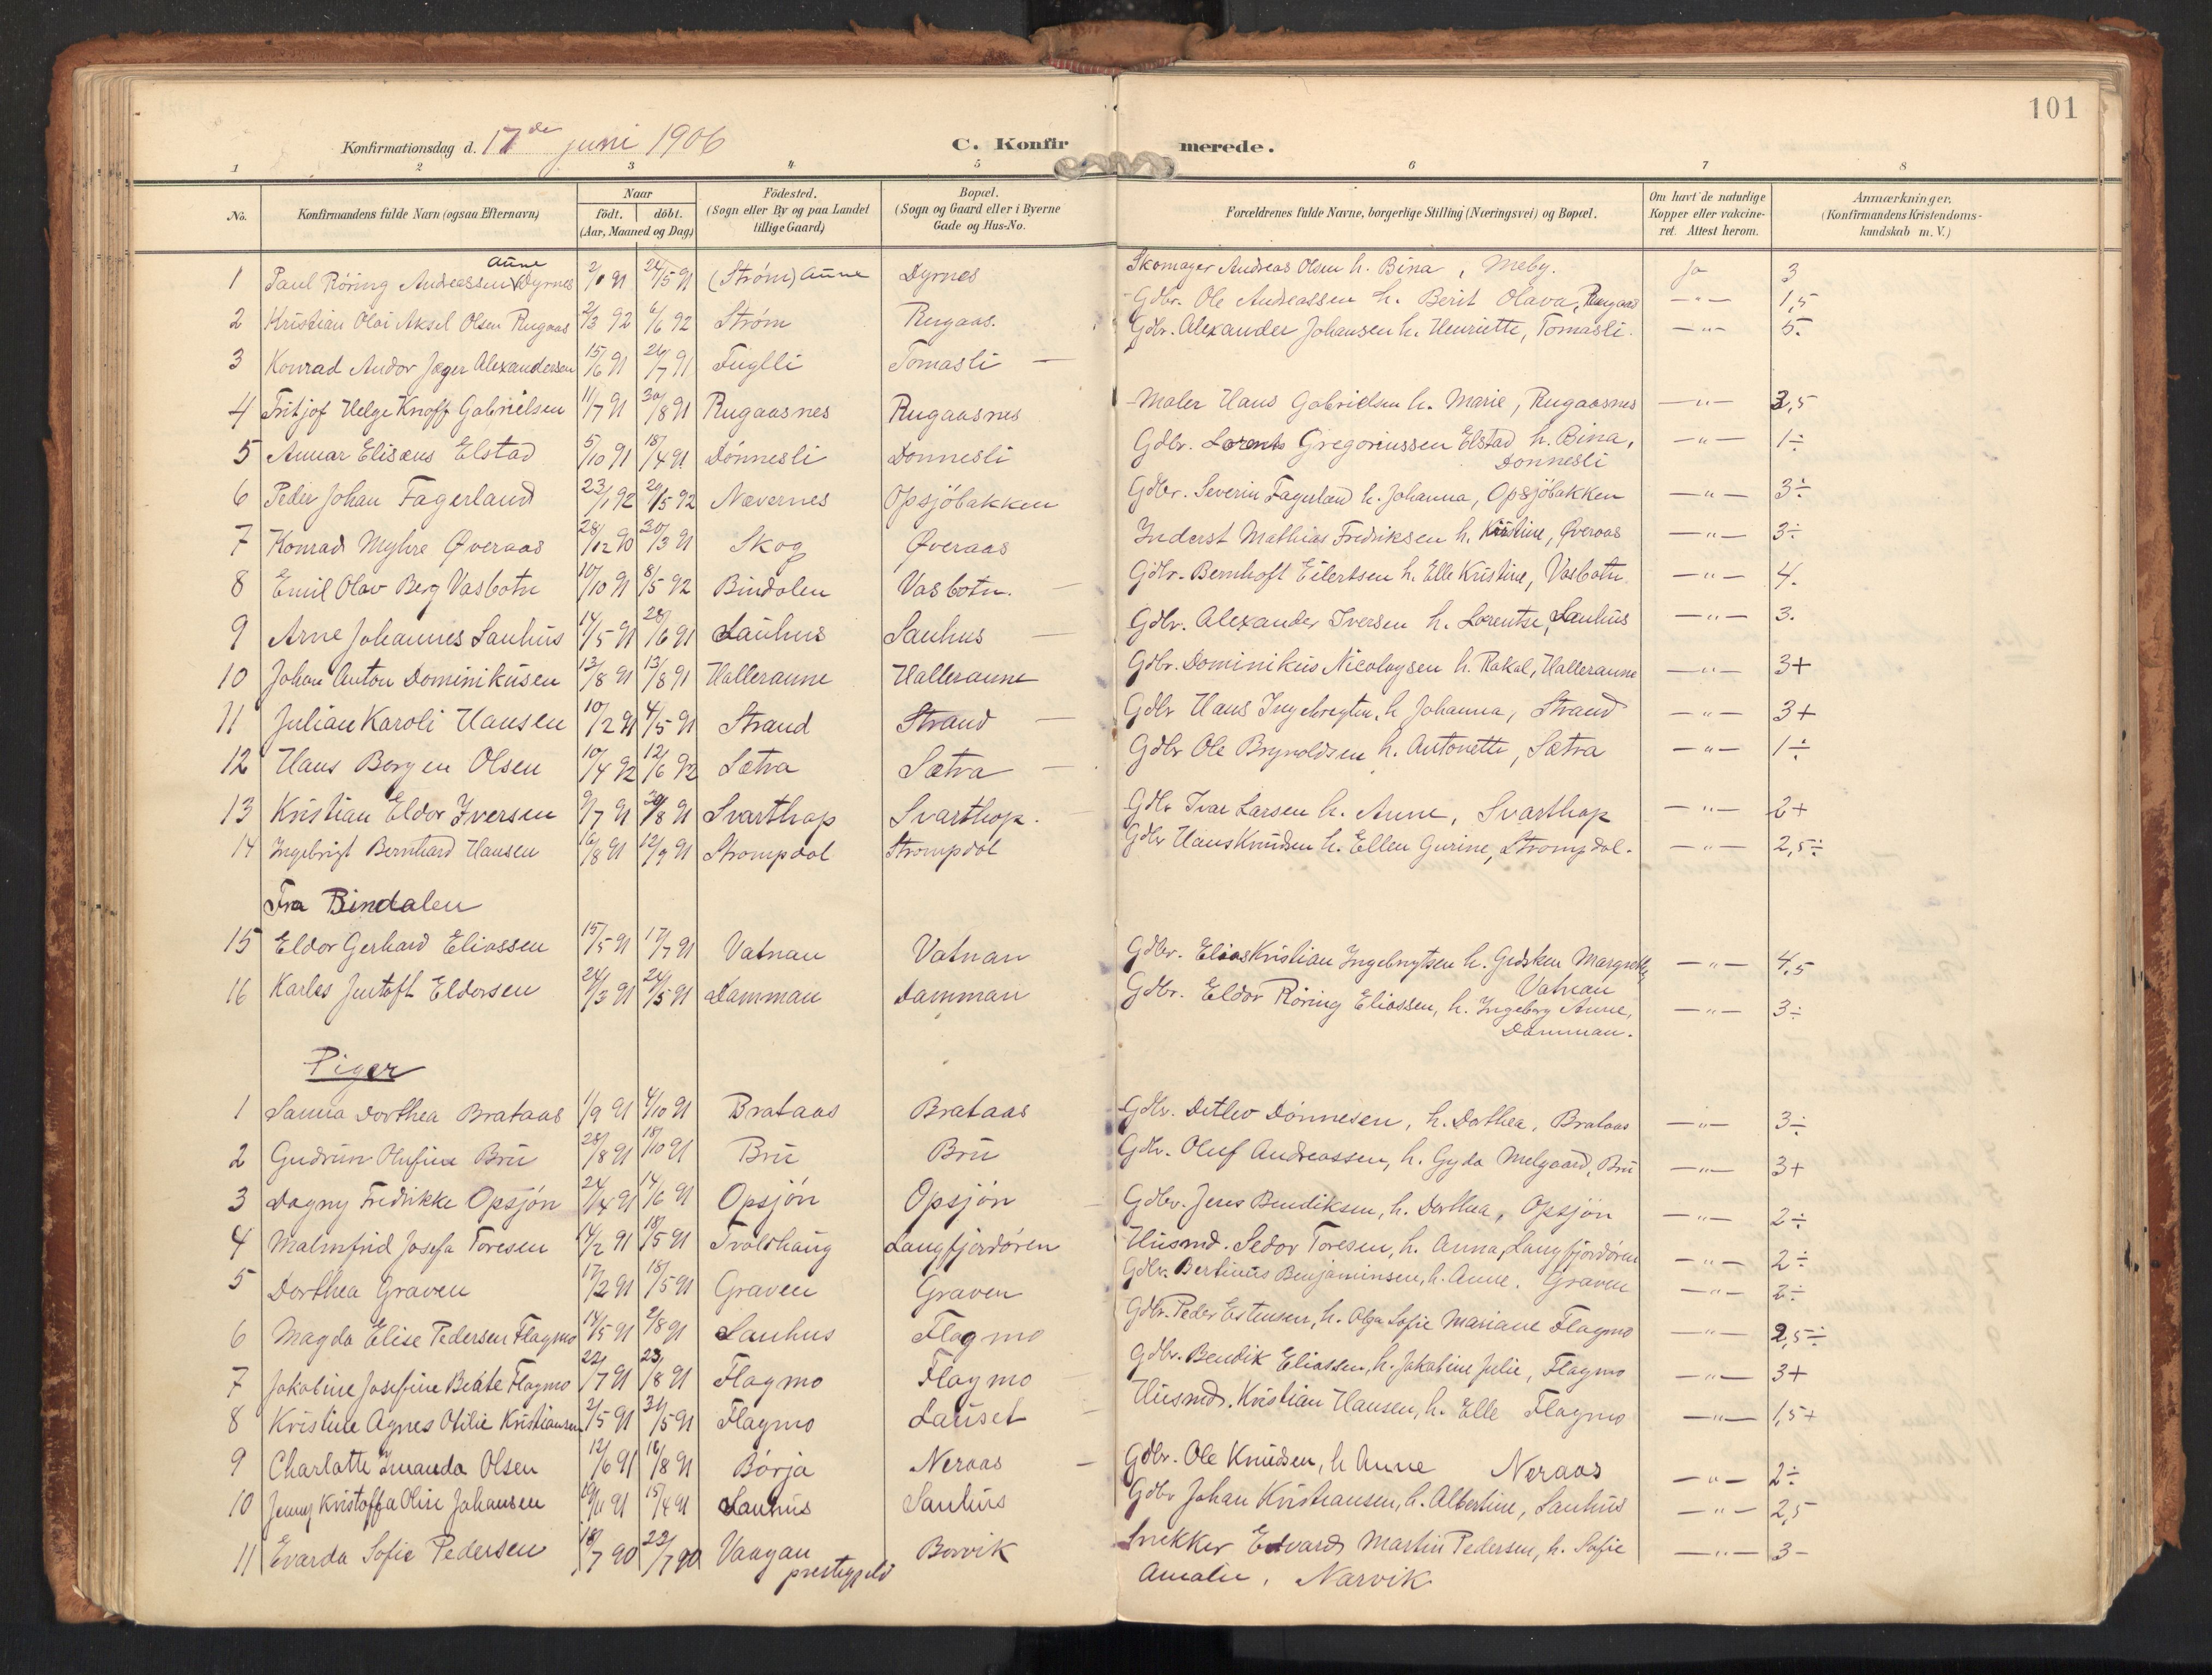 101
Konfirmationsdag d. 17de juni 1906 C. Konfirmerede.
1 2 3 4 5 6 7 8
No. Konfirmandens fulde Navn (ogsaa Efternavn) Naar födt. döbt. (Aar, Maaned og Dag) Födested. (Sogn eller By og paa Landet tillige Gaard) Bopæl. (Sogn og Gaard eller i Byerne Gade og Hus-No. Forældrenes fulde Navne, borgerlige Stilling (Næringsvei) og Bopæl. Om havt de naturlige Kopper eller vakcineret. Attest herom. Anmærkninger. (Konfirmandens Kristendomskundskab m. V.)
1 Paul Röring Andreassen Aune Dyrnes 2/1 91 24/5 91 (Ström) Aune Dyrnes Skomager Andreas Olsen h. Bina, Meby. Ja 3
2 Kristian Olai Aksel Olsen Rugaas 2/3 92 6/6 92 Ström Rugaas. Gdbr. Ole Andreassen h. Berit Olava, Rugaas —"— 1,5
3 Konrad Andor Jæger Alexandersen 15/6 91 24/7 91 Fuglli Tomasli — Gdbr. Alexander Johansen h. Henriette, Tomasli. —"— 5.
4 Fritjof Helge Knoff Gabrielsen 11/7 91 30/8 91 Rugaasnes Rugaasnes Maler Hans Gabrielsen h. Marie, Rugaasnes —"— 3,5
5 Annar Elisæus Elstad 5/10 91 18/4 91 Dönnesli Donnesli Gdbr. Lorents Gregoriussen Elstad h. Bina, Donnesli —"— 1÷
6 Peder Johan Fagerland 23/1 92 29/5 92 Nævernes Opsjöbakken Gdbr. Severin Fagerland h. Johanna, Opsjöbakken —"— 3÷
7 Konrad Myhre Øveraas 28/12 90 30/3 91 Skog Øveraas Inderst Mathias Fredriksen h. Kristine, Øveraas —"— 3÷
8 Emil Olav Berg Vasbotn 10/10 91 8/5 92 Bindalen Vasbotn. Gdbr. Bernhoft Eilertsen h. Elle Kristine, Vasbotn. —"— 4.
9 Arne Johannes Sauhus 14/5 91 28/6 91 Sauhus Sauhus — Gdbr. Alexander Iversen h. Lorentse, Sauhus —"— 3.
10 Johan Anton Dominikusen 13/8 91 13/8 91 Halleraune Halleraune Gdbr. Dominikus Nicolaysen h. Rakal, Halleraune —"— 3+
11 Julian Karoli Hansen 10/2 91 4/5 91 Strand Strand — Gdbr Hans Ingebregtn. h Johanna, Strand —"— 3+
12 Hans Borgen Olsen 10/4 92 12/6 92 Sætra Sætra — Gdbr Ole Brynoldsen h. Antonette, Sætra —"— 1÷
13 Kristian Eldor Iversen 9/7 91 30/8 91 Svarthop Svarthop. Gdbr Ivar Larsen h. Anne, Svarthop —"— 2+
14 Ingebrigt Bernhard Hansen 16/8 91 12/9 91 Strompdal Strompdal Gdbr Hans Knudsen h. Ellen Gurine, Strompdal. —"— 2,5÷
Fra Bindalen
15 Eldor Gerhard Eliassen 15/5 91 17/7 91 Vatnan Vatnan Gdbr. Elias Kristian Ingebrigtsen h. Gidsken Margrethe, Vatnan —"— 4,5
16 Karles Justoft Eldorsen 24/3 91 24/5 91 Damman Damman Gdbr. Eldor Röring Eliassen, h. Ingeborg Anne, Damman. —"— 3÷
Piger
1 Sanna Dorthea Brataas 1/9 91 4/10 91 Brataas Brataas Gdbr. Detlev Dönnesen, h. Dorthea, Brataas —"— 3÷
2 Gudrun Olufine Bru 28/8 91 18/10 91 Bru Bru Gdbr. Oluf Andreassen, h. Gyda Melgaard, Bru —"— 3+
3 Dagny Fredrikke Opsjön 24/4 91 14/6 91 Opsjön Opsjön Gdbr. Jens Bendiksen, h. Dorthea, Opsjön —"— 2÷
4 Malmfrid Josefa Toresen 14/2 91 18/5 91 Tvoldhaug Langfjordören Husmd. Sedor Toresen, h. Anna, Langfjordören —"— 2÷
5 Dorthea Graven 17/2 91 18/5 91 Graven Graven Gdbr. Bertinus Benjaminsen, h. Anne. Graven —"— 2÷
6 Magda Elise Pedersen Flagmo 14/5 91 2/8 91 Sauhus Flagmo Gdbr. Peder Estensen, h. Olga Sofie Mariane Flagmo —"— 2,5÷
7 Jakobine Josefine Beate Flagmo 22/7 91 23/8 91 Flagmo Flagmo Gdbr. Bendik Eliassen, h. Jakobine Julie, Flagmo —"— 3+
8 Kristine Agnes Otilie Kristiansen 2/5 91 31/5 91 Flagmo Lauset Husmd. Kristian Hansen, h. Elle Flagmo —"— 1,5+
9 Charlotte Imanda Olsen 12/6 91 16/8 91 Börja Neraas — Gdbr. Ole Knudsen, h Anne Neraas —"— 2÷
10 Jenny Kristoffa Oline Johansen 19/11 91 15/4 91 Sauhus Sauhus Gdbr Johan Kristiansen, h. Albertine, Sauhus —"— 2,5
11 Evarda Sofie Pedersen 18/7 90 22/7 90 Vaagan prestegjeld Borvik Snekker Edvard Martin Pedersen, h. Sofie Amalie, Narvik —"— 3-